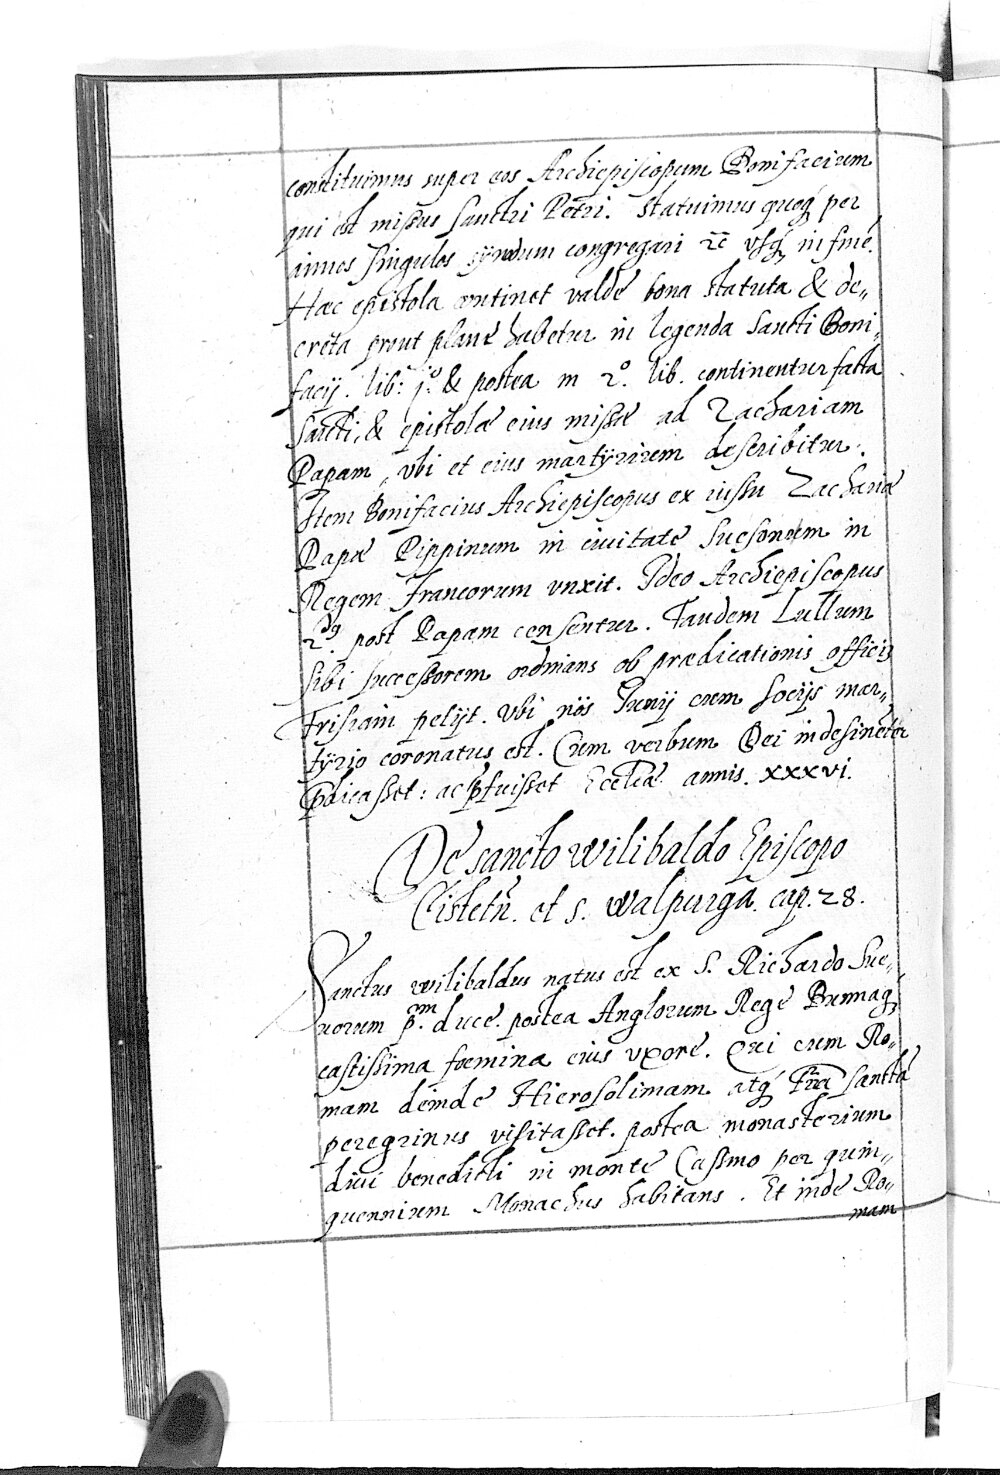 constituimus super eos Archiepiscopum Bonifacium
qui est missus Sancti Petri. Statuimus quoq́ per
annos singulos synodum congregari &c̄ vsq́ in finē.
Hæc epistola continet valde bona statuta & de„
creta prout plane habetur in legenda Sancti Boni„
facij. lib: j.º & postea in 2.º lib. continentur facta
Sancti, & epistolæ eius missæ ad Zachariam
Papam, vbi et eius martyrium describitur.
Item Bonifacius Archiepiscopus ex iussu Zachariæ
Papæ Pippinum in ciuitate Suesonum in
Regem Francorum vnxit. Ideo Archiepiscopus
2.dg post Papam censentur. Tandem Lullum
sibi successorem ordinans ob prædicationis officiũ
Frisiam petijt. Vbi nōs Junij cum socijs mar„
tyrio coronatus est. Cum verbum Dei indesinēter
p̄dicasset: ac p̄fuisset Eccl̄iæ annis. xxxvi.
De sancto Wilibaldo Episcopo
Eistetn̄. et S. Walpurga. cap. 28.
Sanctus Wilibaldus natus est ex S. Richardo Sue„
uorum p.m duce. postea Anglorum Rege Bunnaq́
castissima fœmina eius vxore. Qui cum Ro„
mam deinde Hierosolimam atq́ Trā Sanctā
peregrinus visitasset. postea monasterium
diui benedicti in monte Cassino per quin„
quennium Monachus habitans. Et inde Ro„
mam